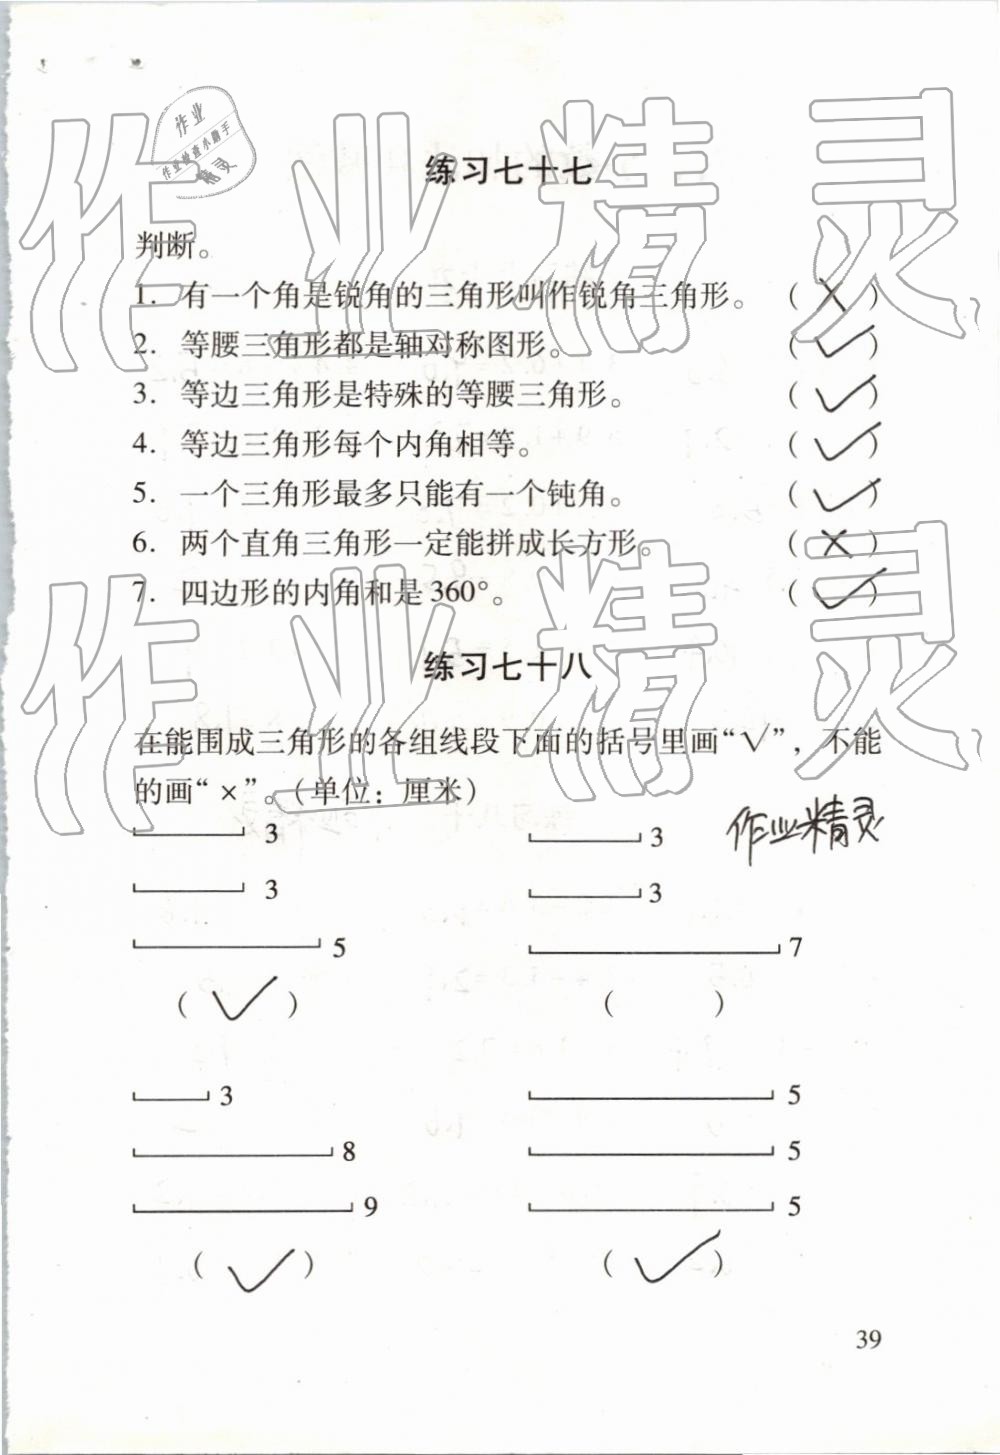 作业
作业检查小助手
精灵
作业精灵
练习七十七
判断。
1. 有一个角是锐角的三角形叫作锐角三角形。 (×)
2. 等腰三角形都是轴对称图形。 (✓)
3. 等边三角形是特殊的等腰三角形。 (✓)
4. 等边三角形每个内角相等。 (✓)
5. 一个三角形最多只能有一个钝角。 (✓)
6. 两个直角三角形一定能拼成长方形。 (×)
7. 四边形的内角和是 360°。 (✓)
作业精灵
练习七十八
在能围成三角形的各组线段下面的括号里画“√”，不能
的画“×”。(单位：厘米)
作业精灵
3 3
3 3
5 7
(✓) ( )
3 5
8 5
9 5
(✓) (✓)
39